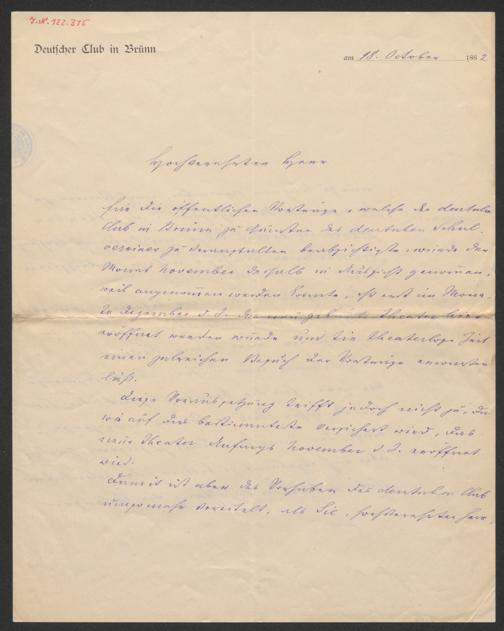 J.N. 122.375
Deutscher Club in Brünn
am 18. October 1882
Hochverehrter Herr
Für die öffentlichen Vorträge, welche der deutsche
Club in Brünn zu Gunsten des deutschen Schul-
vereines zu veranstalten beabsichtigte, wurde der
Monat November deshalb in Aussicht genommen,
weil angenommen werden konnte, es erst im Mona-
te Dezember d. J. das neue Theater hier
eröffnet werden würde und die theaterlose Zeit
einen zalreichen Besuch der Vorträge erwarten
ließ.
Diese Voraussetzung trifft jedoch nicht zu, da
wie auf das bestimmteste versichert wird, das
neue Theater Anfangs November d. J. eröffnet
wird.
Damit ist aber das Vorhaben des deutschen Club
umsomehr vereitelt, als Sie, hochverehrter Herr,